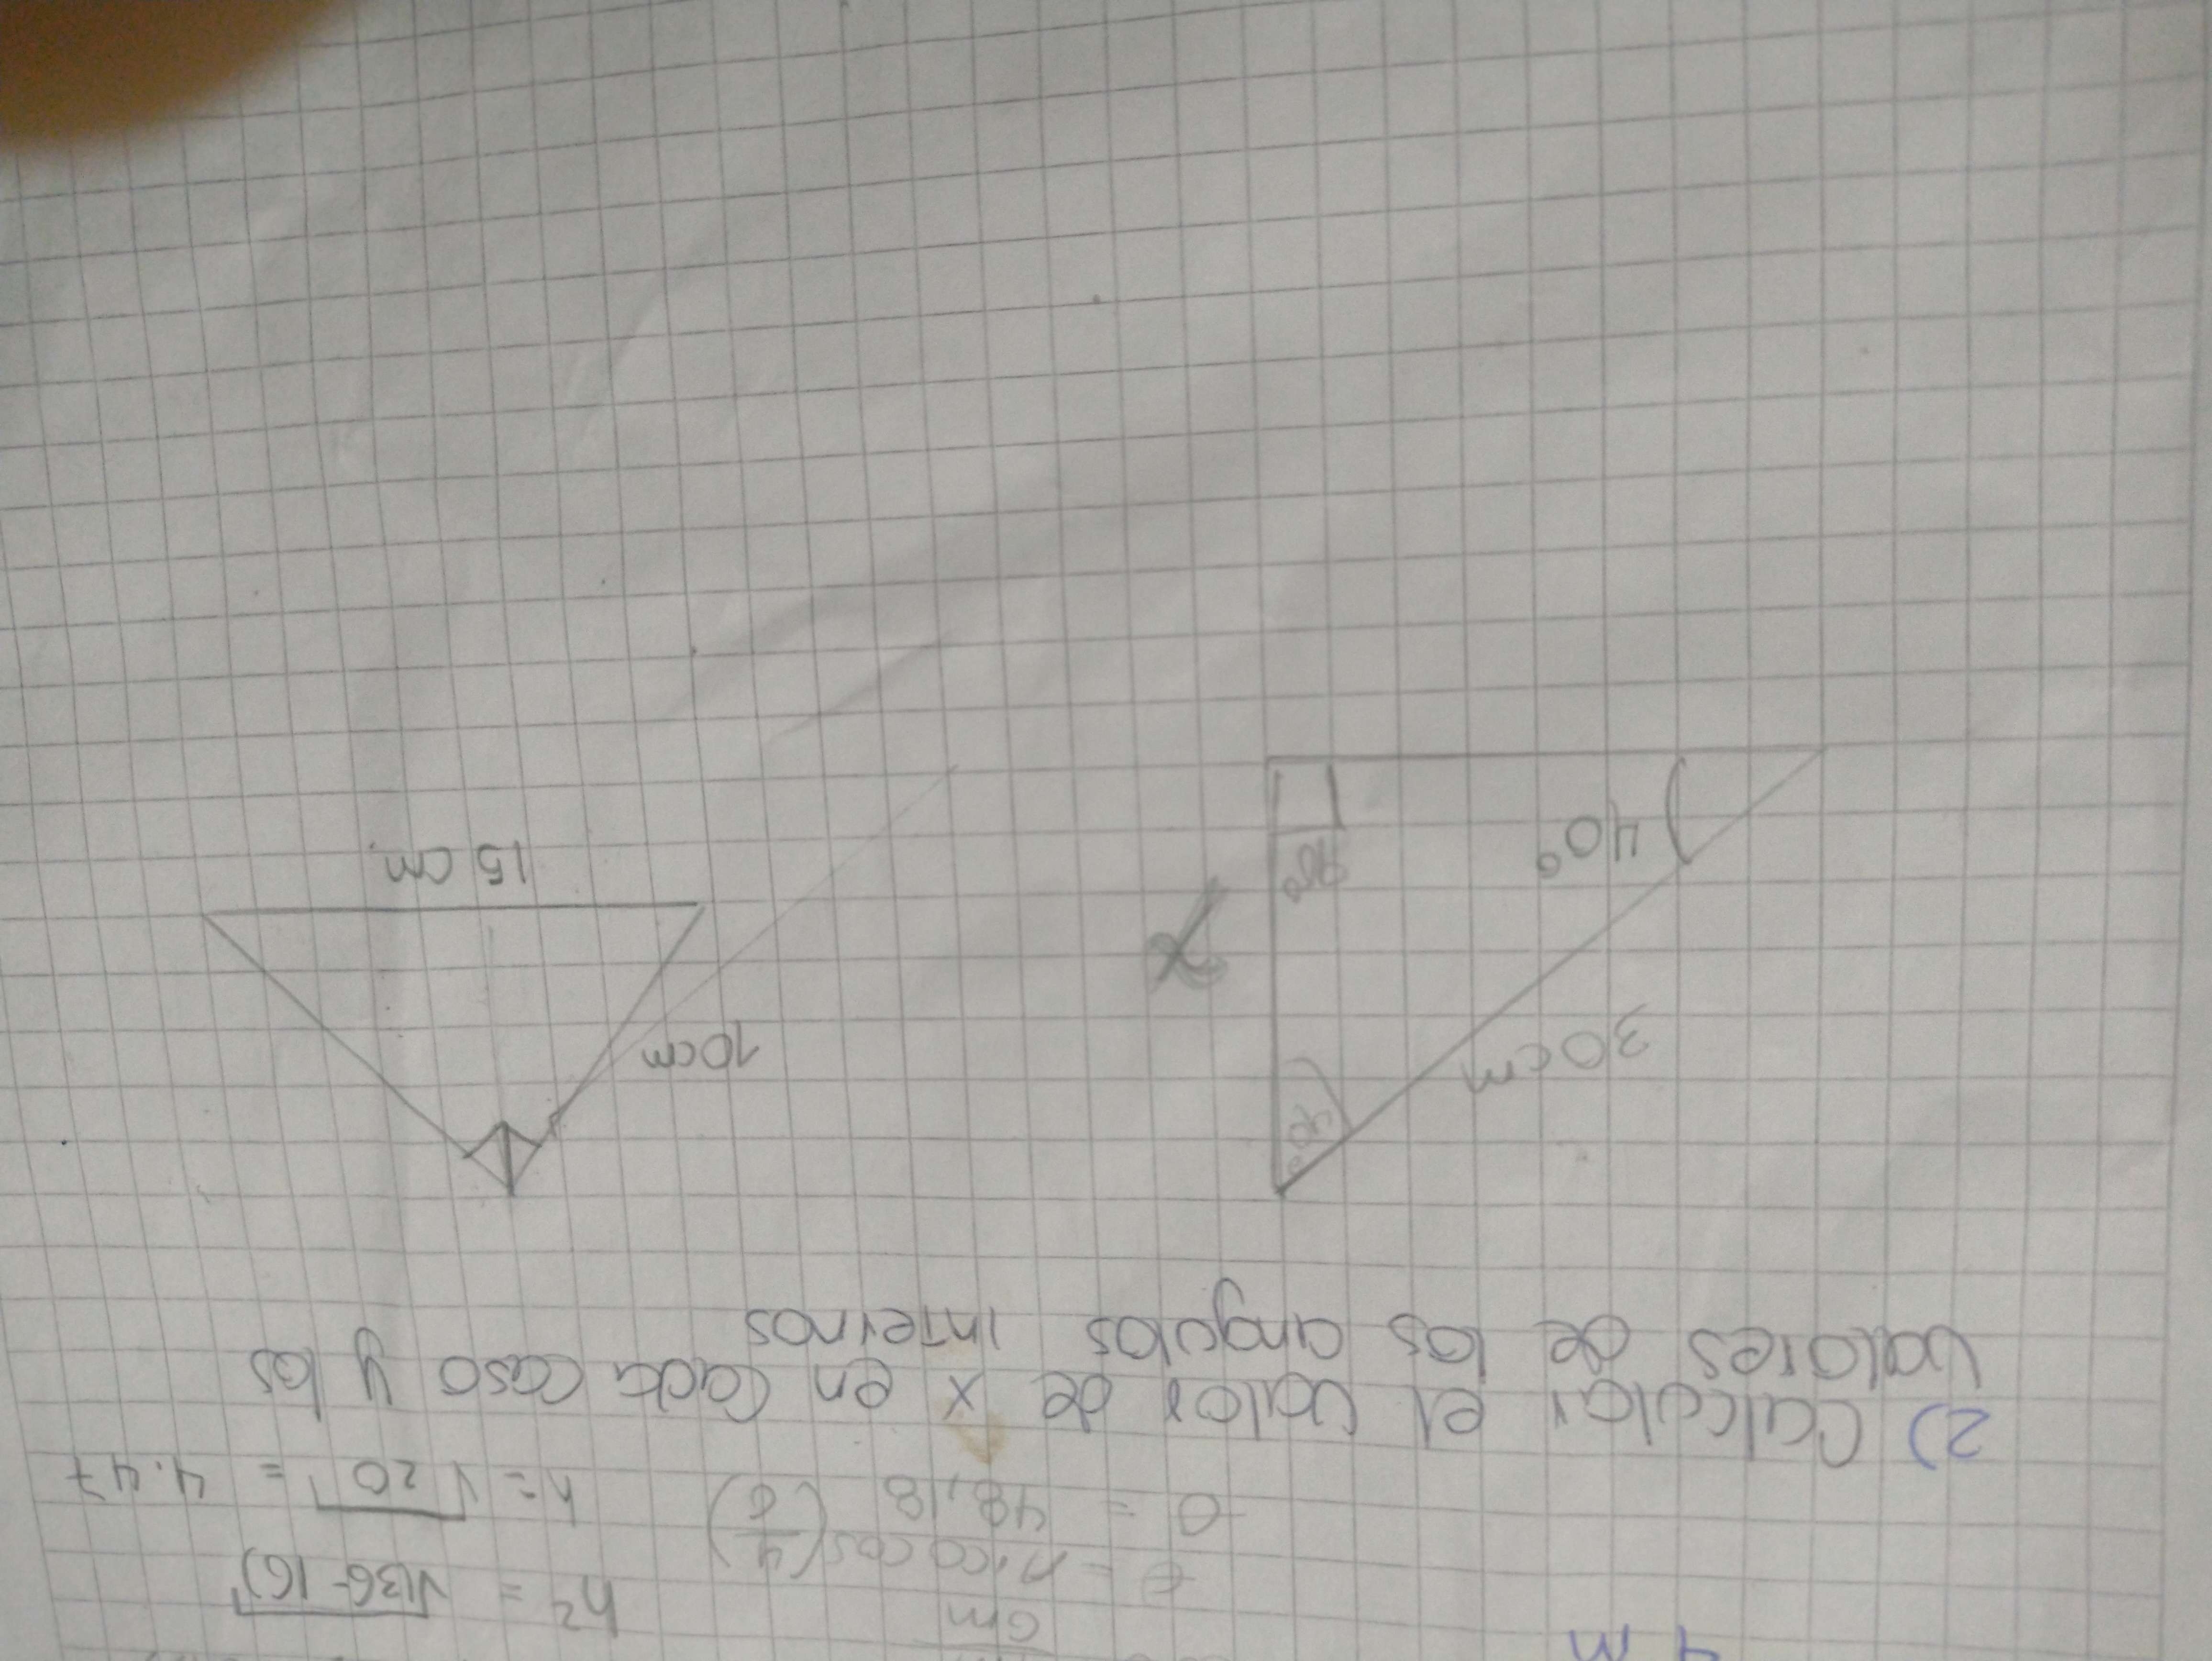 4 m
cm
θ = Arcocos (4/6)
h² = √(36-16)
θ = 48,18
h = √20 = 4.47
2) Calcular el valor de x en cada caso y los
valores de los angulos internos
30 cm
40°
x
10cm
15 cm